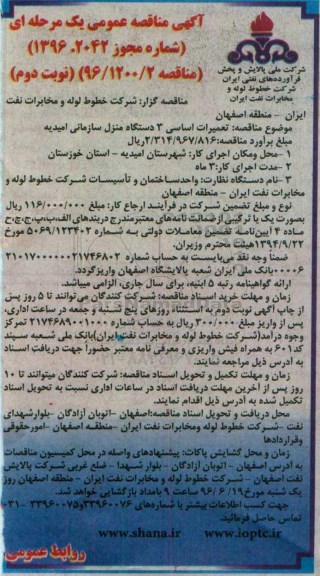 آگهی مناقصه عمومی یک مرحله ای
(شماره مجوز ۲۰۴۲. ۱۳۹۶)
(مناقصه ۹۶/۱۲۰۰/۲) (نوبت دوم)
شرکت ملی پالایش و پخش
فرآورده‌های نفتی ایران
شرکت خطوط لوله و
مخابرات نفت ایران
مناقصه گزار: شرکت خطوط لوله و مخابرات نفت
ایران - منطقه اصفهان
موضوع مناقصه: تعمیرات اساسی ۳ دستگاه منزل سازمانی امیدیه
مبلغ برآورد مناقصه: ۲/۳۱۴/۹۶۷/۸۱۶ریال
۱-محل ومکان اجرای کار: شهرستان امیدیه - استان خوزستان
۲-مدت اجرای کار: ۳ ماه
۳-نام دستگاه نظارت: واحدساختمان و تأسیسات شرکت خطوط لوله و
مخابرات نفت ایران - منطقه اصفهان
نوع و مبلغ تضمین شرکت در فرآیند ارجاع کار: مبلغ ۱۱۶/۰۰۰/۰۰۰ ریال
بصورت یک یا ترکیبی از ضمانت نامه‌های معتبرمندرج دربندهای الف،ب،پ،ج،چ،ح
ماده ۴ آیین‌نامه تضمین معاملات دولتی به شماره ۱۲۳۴۰۲/ت۵۰۶۹ مورخ
۱۳۹۴/۹/۲۲هیئت محترم وزیران.
ضمناً وجه نقد می‌بایست به حساب شماره ۲۱۷۴۶۸۰۲
۰۰۰۶بانک ملی ایران شعبه پالایشگاه اصفهان واریزگردد.
ارائه گواهینامه رتبه ۵ ابنیه، برای سال جاری، الزامی میباشد.
زمان و مهلت خرید اسناد مناقصه: شرکت کنندگان می‌توانند تا ۵ روز پس
از چاپ آگهی نوبت دوم به استثناء روزهای پنج شنبه و جمعه در ساعات اداری،
پس از واریز مبلغ ۳۰۰/۰۰۰ ریال به حساب شماره ۲۱۷۴۶۸۹۰۰۱۰۰۰ تمرکز
وجوه درآمد(شرکت خطوط لوله و مخابرات نفت ایران)بانک ملی شعبه سپند
کد۶۰۱ به همراه فیش واریزی و معرفی نامه معتبر حضوراً جهت دریافت اسناد
به آدرس ذیل مراجعه نمایند.
زمان و مهلت تکمیل و تحویل اسناد مناقصه: شرکت کنندگان میتوانند تا ۱۰
روز پس از آخرین مهلت دریافت اسناد در ساعات اداری نسبت به تحویل اسناد
تکمیل شده به آدرس ذیل اقدام نمایند.
محل دریافت و تحویل اسناد مناقصه:اصفهان -اتوبان آزادگان -بلوارشهدای
نفت -شرکت خطوط لوله ومخابرات نفت ایران -منطقه اصفهان -امورحقوقی
وقراردادها
زمان و محل گشایش پاکات: پیشنهادهای واصله در محل کمیسیون مناقصات
به آدرس اصفهان - اتوبان آزادگان - بلوار شهدا - ضلع غربی شرکت پالایش
نفت اصفهان - شرکت خطوط لوله و مخابرات نفت ایران - منطقه اصفهان روز
یک شنبه مورخ ۹۶/۶/۱۹ ساعت ۹ بامداد بازگشایی خواهد شد.
جهت کسب اطلاعات بیشتر با شماره‌های ۳۳۹۶۰۰۷۶و۳۳۹۶۰۰۷۵ -۰۳۱
تماس حاصل فرمائید.
www.shana.ir www.ioptc.ir
روابط عمومی